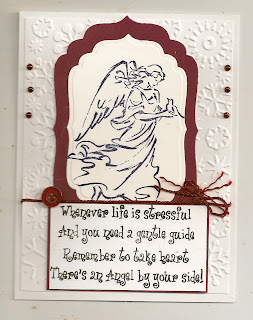 Whenever life is stressful
And you need a gentle guide
Remember to take heart
There's an Angel by your side!